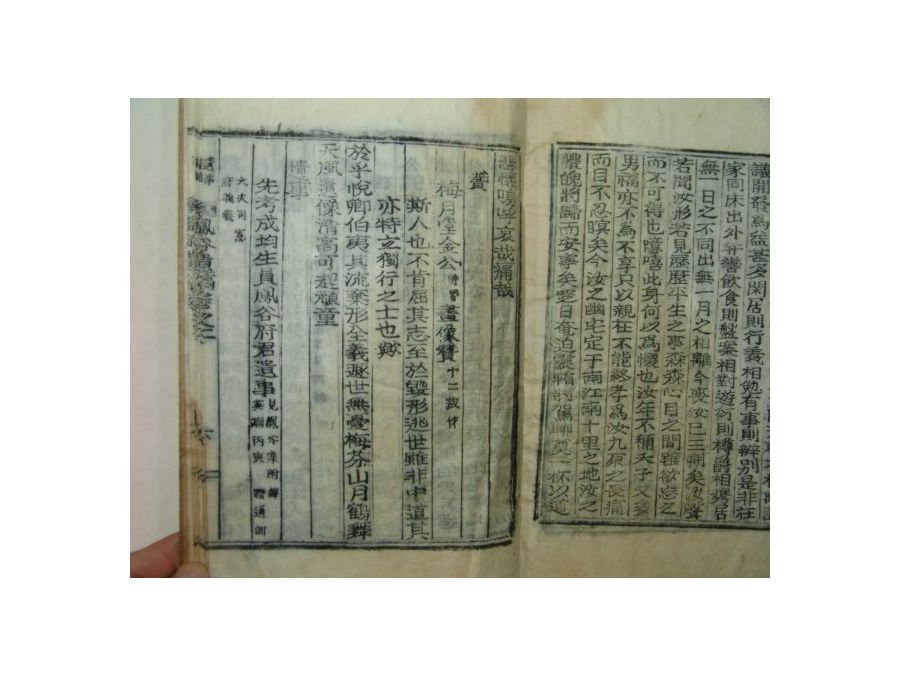 議開發爲益甚多閑居則行義相勉有事則辨別是非在
家同床出外並轡飮食則盤案相對遊衍則樽爵相携居
無一日之不同出無一月之相離今喪汝已三朔矣汝聲
若聞汝形若見歷歷平生之事森森心目之間雖欲忘之
而不可得也噫嘻此身何以爲懷也汝年不稱夭子又多
男福亦不爲不享只以親在不能終孝爲汝九原之長痛
而目不忍瞑矣今汝之幽宅定于南江南十里之地汝之
體魄將歸而安寧矣愛日奄迫靈輀將駕聊奠一杯以道
悲懷嗚呼哀哉痛哉
贊
梅月堂金公時習畫像贊十二歲作
斯人也不肯屈其志至於毀形逃世雖非中道其
亦特立獨行之士也歟
於乎悅卿伯夷其流棄形全義遯世無憂梅芬山月鶴舞
天風遺像淸高可起頑童
遺事
先考成均生員鳳谷府君遺事見鳳谷集附錄
贈通訓
大夫司憲
府執義